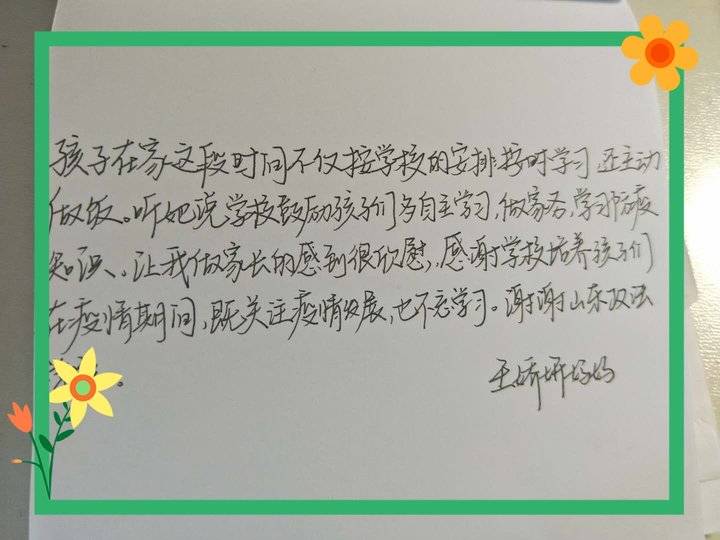 孩子在家这段时间不仅按学校的安排按时学习还主动
做饭。听她说学校鼓励孩子们多自主学习,做家务,学习防疫
知识、让我做家长的感到很欣慰,感谢学校培养孩子们
在疫情期间,既关注疫情发展,也不忘学习。谢谢山东政法
王娇妍妈妈